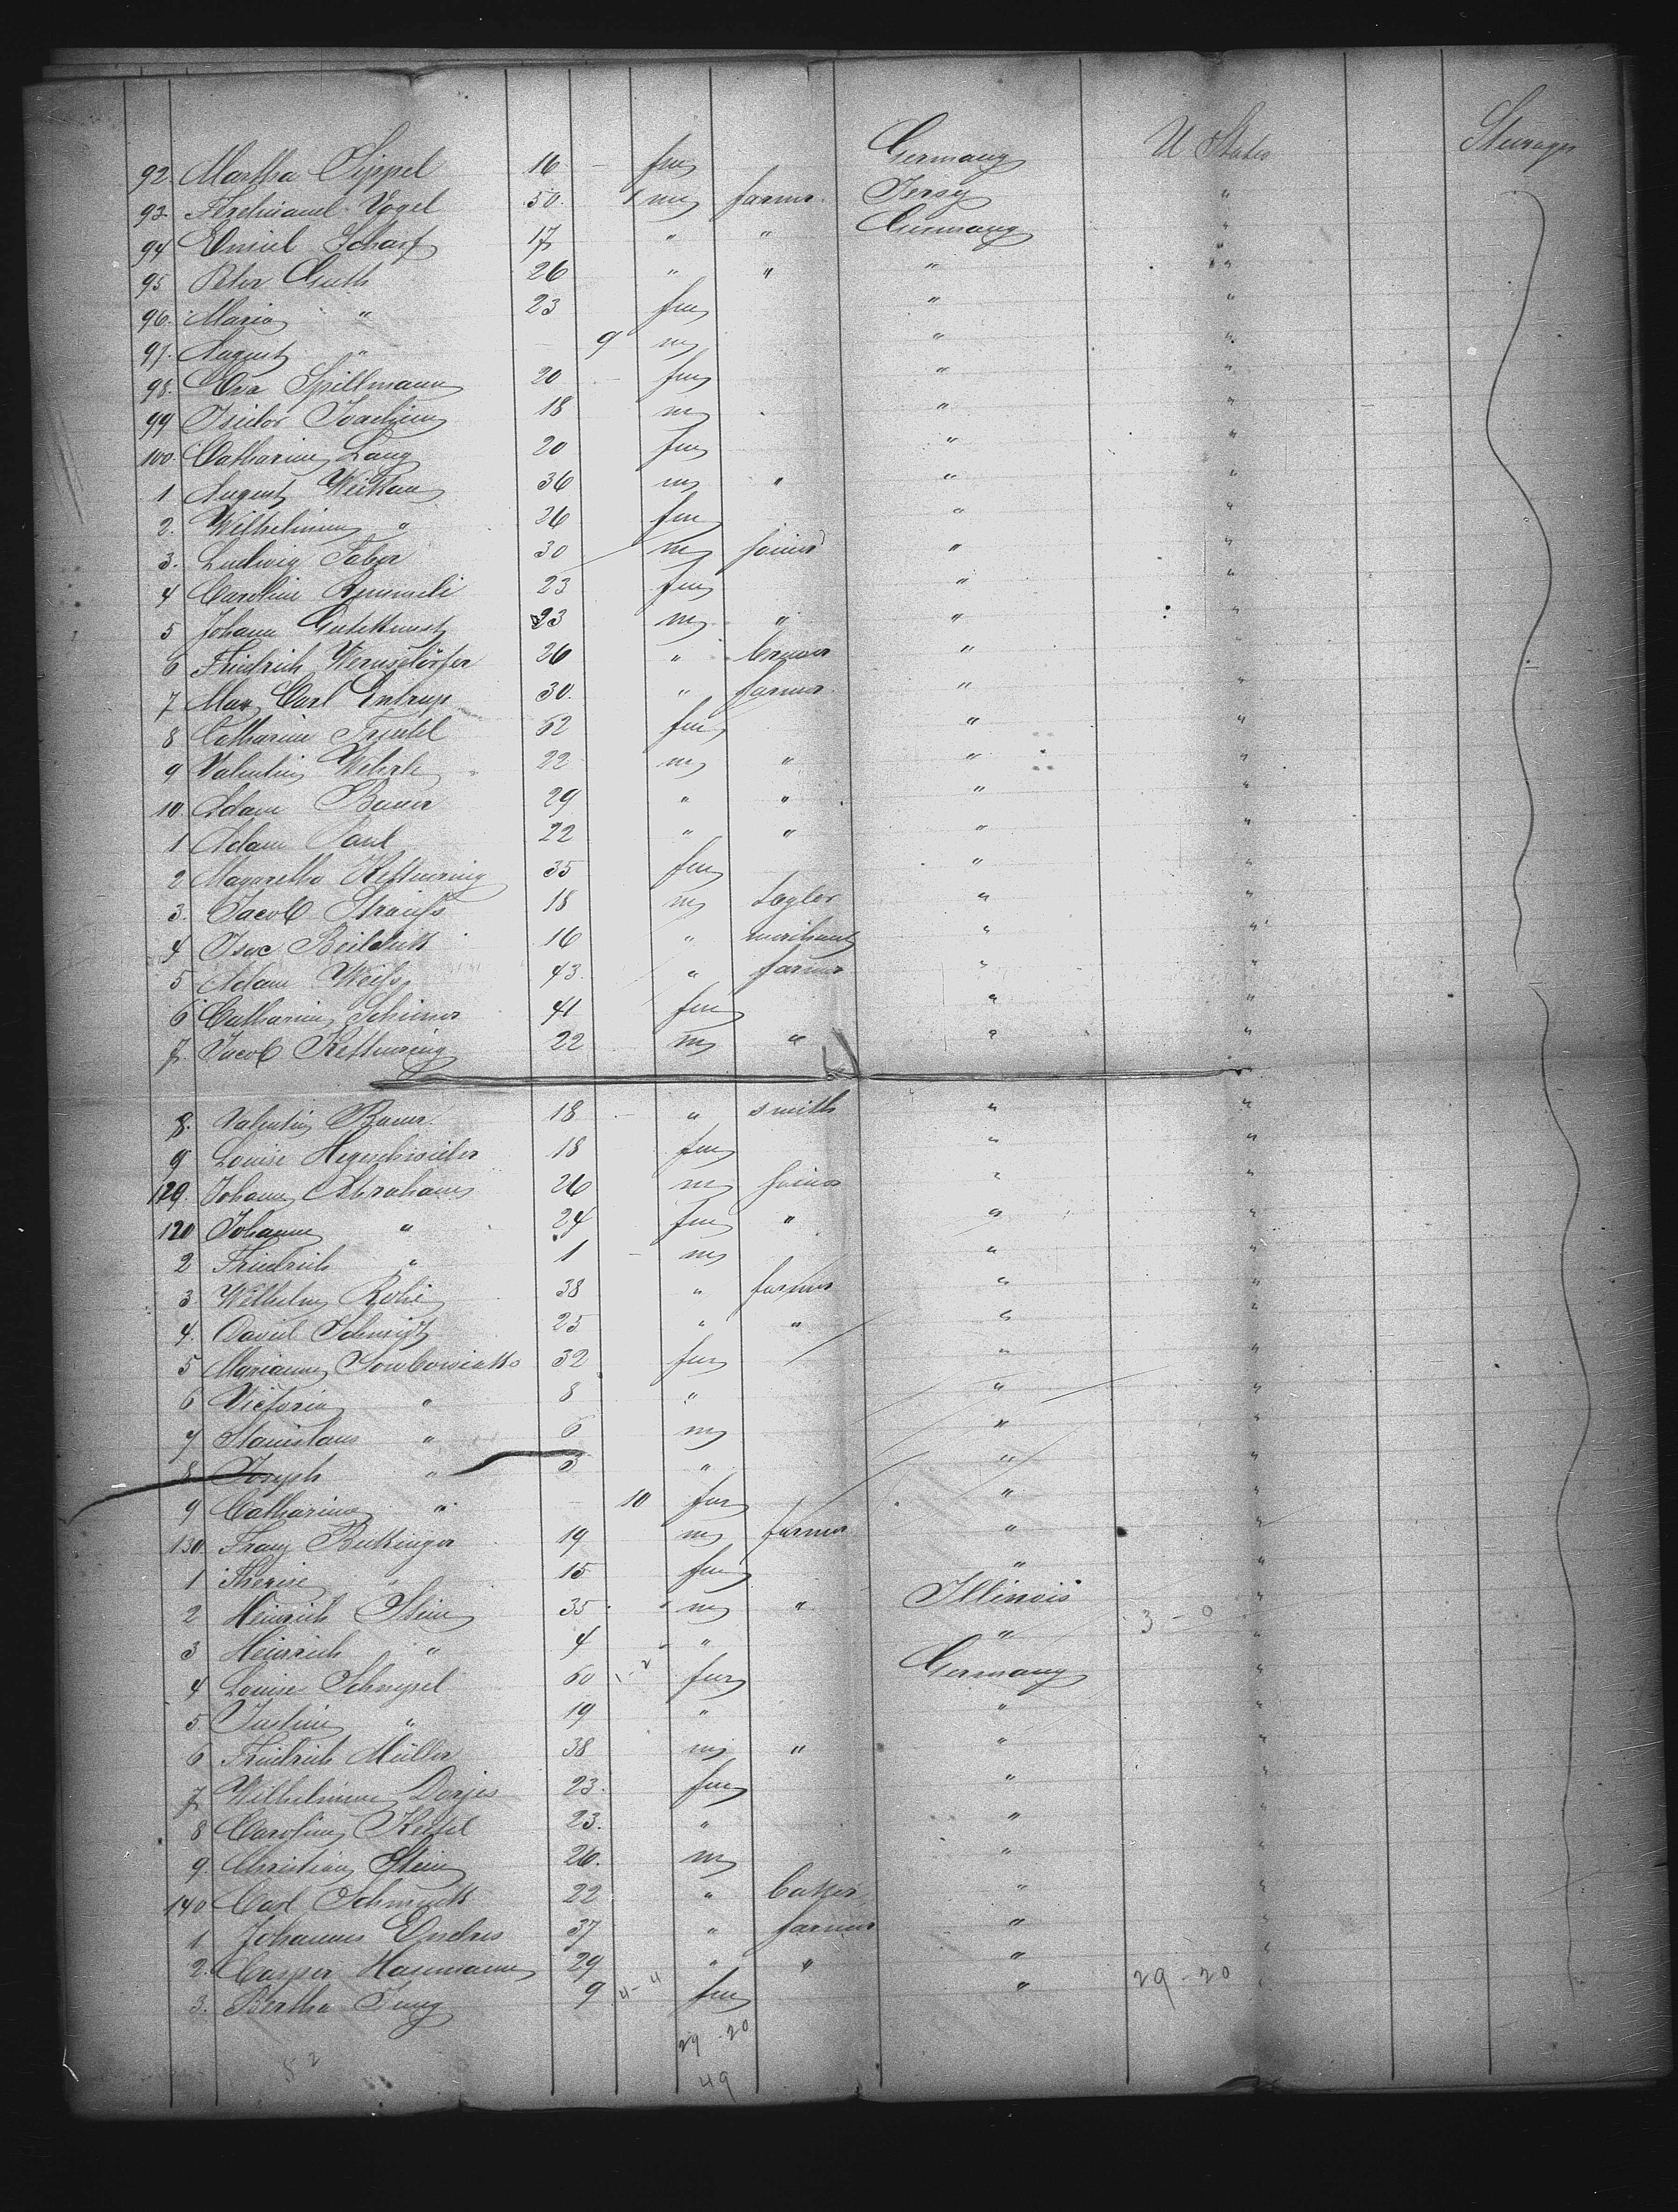 92. Martha Sippel 16 — fm Germany U States Steerage
93. Ferdinand Vogel 50. 1 m farmer. Jersey "
94 Emiel Scharf 17 " " Germany "
95 Peter Guth 26 " " " "
96. Maria " 23 fm " "
97. August " — 9 m " "
98. Eva Spillmann 20 — fm " "
99 Isidor Joachim 18 m " "
100. Catharine Lang 20 fm " "
1 August 36 m " " "
2. Wilhelmine " 26 fm " "
3. Ludwig 30 m joiner " "
4 Caroline 23 fm " "
5 Johann Gutekunst 23 m " " "
6 Friedrich Wernsdörfer 26 " brewer " "
7 Max Carl Entrup 30. " farmer. " "
8 Catharine 62 fm " "
9 Valentin Wehrle 22 m " " "
10. Adam Bauer 29 " " " "
1 Adam Paul 22 " " " "
2. Magaretha Kettenring 35 fm " "
3. Jacob Strauss 18 m taylor " "
4 Isac 16 " merchant " "
5 Adam Weiss 43. " farmer " "
6 Catharine 41 fm " "
7. Jacob Kettenring 22 m " " "
8. Valentin Bauer. 18 — " smith " "
9 Louise 18 fm " "
129. Johann Abraham 26 m joiner " "
120 Johanna " 24 fm " " "
2 Friedrich " 1 — m " "
3 Wilhelm 38 " farmer " "
4. David Schmidt 25 " " " "
5 Marianne 32 fm " "
6 Victoria " 8 " " "
7 Stanislaus " 6 m " "
8 Joseph " 3 " " "
9 Catharina " — 10 fm " "
130. Franz 19 m farmer " "
1 Therese " 15 fm " "
2 Heinrich Stein 35 m " Illinois "
3 Heinrich " 4 " " 3 - 0 "
4 Louise 60 1-2 fm Germany "
5 Justine " 19 " " "
6 Friedrich Müller 38 m " " "
7 Wilhelmine 23. fm " "
8 Caroline 23. " " "
9. Christian Stein 26. m " "
140 Carl 22 " baker " "
1 Johannes Endres 37 " farmer " "
2. Casper 29 " " " "
3. Bertha Jung 9 4-4 fm " 29-20 "
29-20
52
49